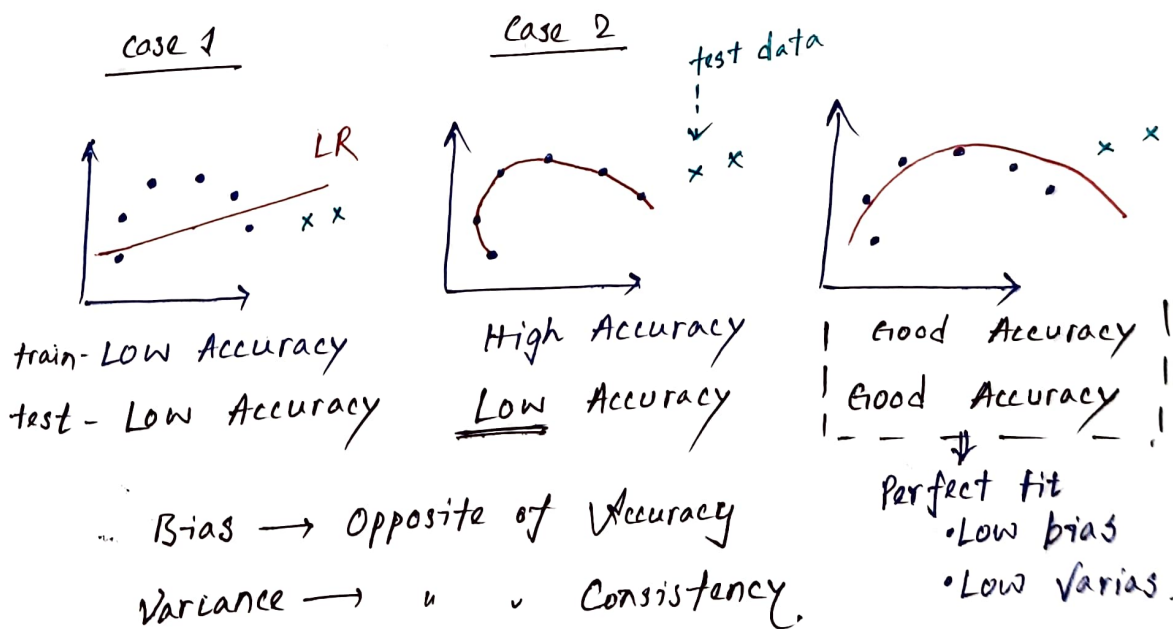 Case 1
Case 2
test data
LR
train - Low Accuracy
test - Low Accuracy
High Accuracy
Low Accuracy
Good Accuracy
Good Accuracy
Perfect fit
• Low bias
• Low Varias.
Bias → Opposite of Accuracy
Variance → " " Consistency.